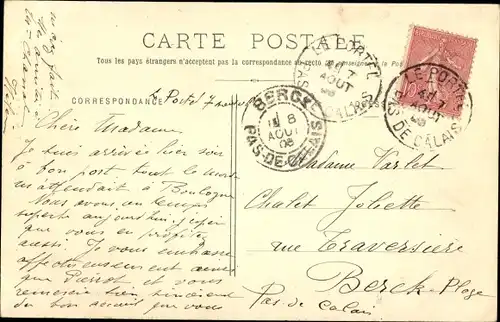 CARTE POSTALE
Tous les pays étrangers n'acceptent pas la correspondance au recto
CORRESPONDANCE
Le Portel
LE PORTEL
7
AOUT
PAS DE CALAIS
LE PORTEL
7
AOUT
PAS DE CALAIS
BERCK
8
AOUT
08
PAS-DE-CALAIS
10
Chère Madame,
Je suis arrivée hier soir
à bon port, tout le
m'attendait à Boulogne
Nous avons un temps
superbe aujourd'hui, j'espère
que vous en profitez
aussi. Je vous embrasse
affectueusement ainsi
que Pierrot et vous
remercie bien
du bon que vous
Madame Varlet
Chalet Joliette
rue Traversière
Berck-Plage
Pas de Calais